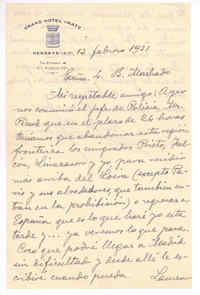 GRAND HOTEL IMATZ
HENDAYE
12 febrero 1931
Señor L. B. Machado
Mi respetable amigo: Ayer
nos comunicó el jefe de Policía
que en el plazo de 24 horas
teníamos que abandonar esta región
fronteriza los emigrados Prieto,
y yo para
mas arriba del Loira (excepto Pa-
rís y sus alrededores que también en-
tran en la prohibición) o regresar a
España que es lo que haré yo esta
tarde y... ya veremos lo que pasa.
Creo que podré llegar a Madrid
sin dificultad y desde allí le es-
cribiré cuando pueda.